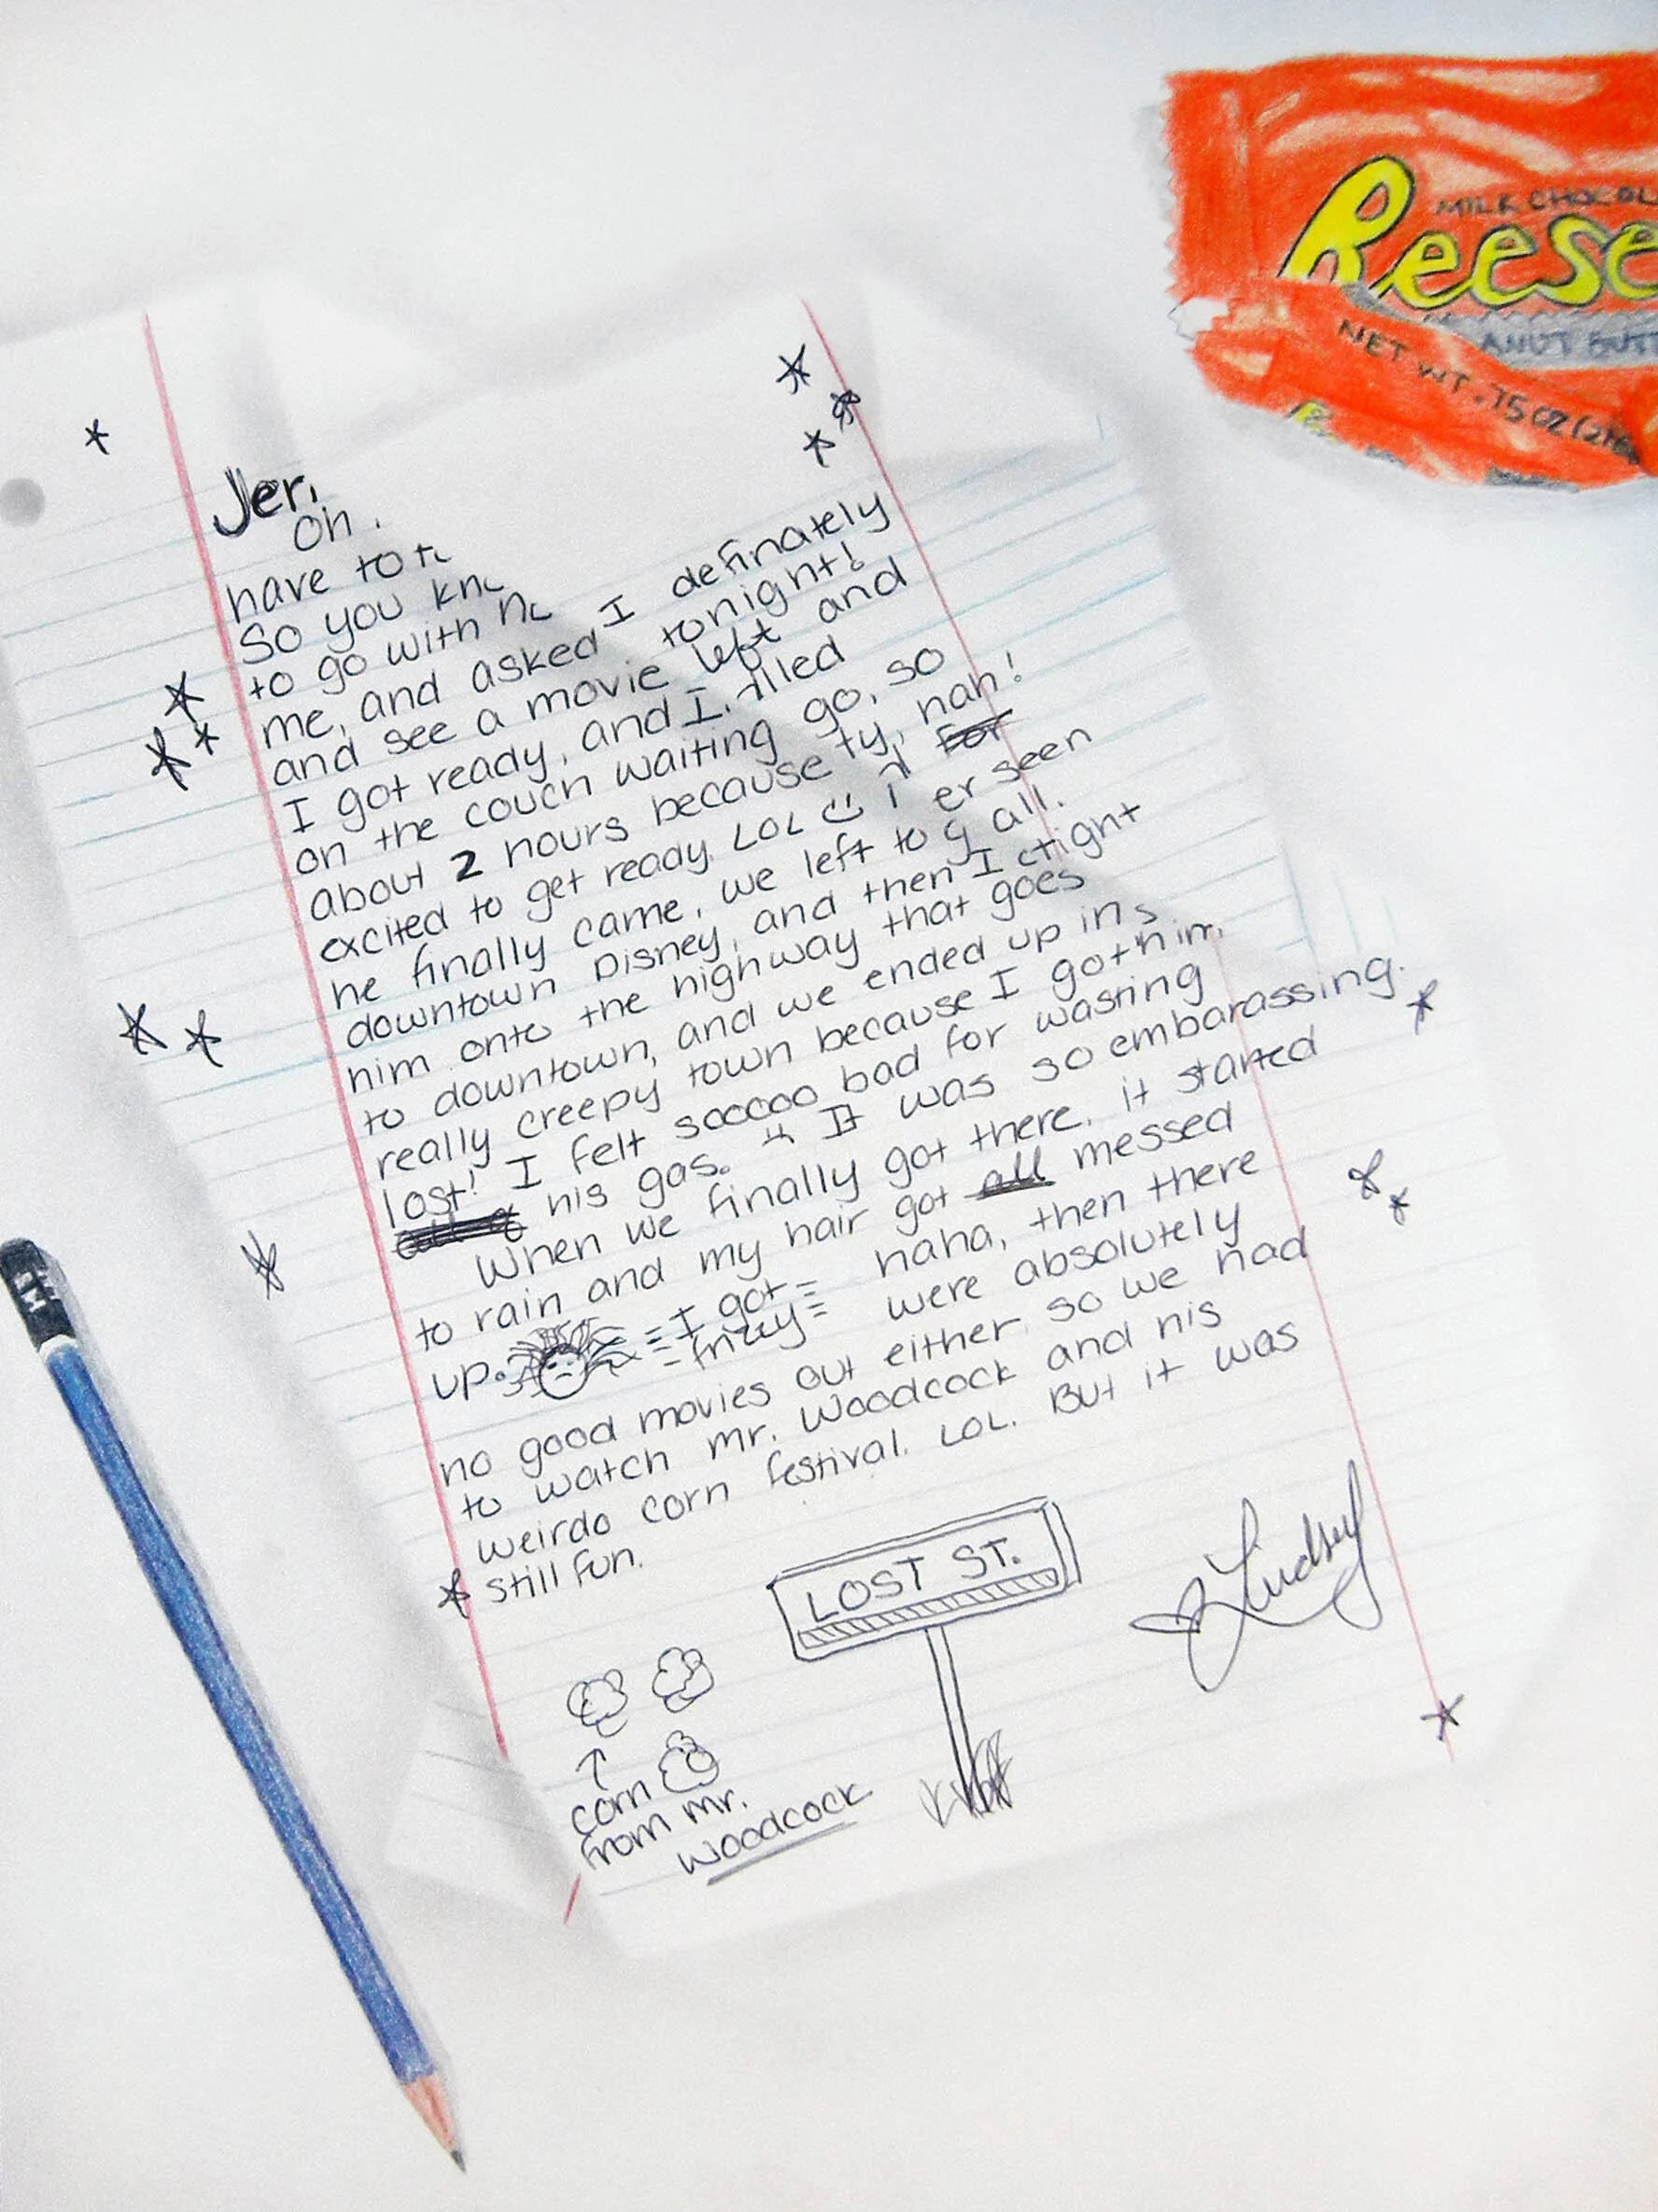 Reese
MILK CHOCOL
ANUT BUTT
NET WT .75 OZ (21g
Jer,
Oh
have to
So you
to go with
me, and asked I definately
and see a movie tonight!
I got ready, and I left and
on the couch waiting
about 2 hours because go, so
excited to get ready. LOL nah!
he finally came, we left to For
downtown Disney, and then I er seen
him onto the highway that goes all.
to downtown, and we ended up in
really creepy town because I got him
lost! I felt sooooo bad for wasting
his gas. It was so embarassing.
When we finally got there, it started
to rain and my hair got all messed
up. I got frizzy haha, then there
were absolutely
no good movies out either so we had
to watch mr. Woodcock and his
weirdo corn festival. LOL. But it was
still fun.
LOST ST.
Lindsey
corn
from mr.
woodcock